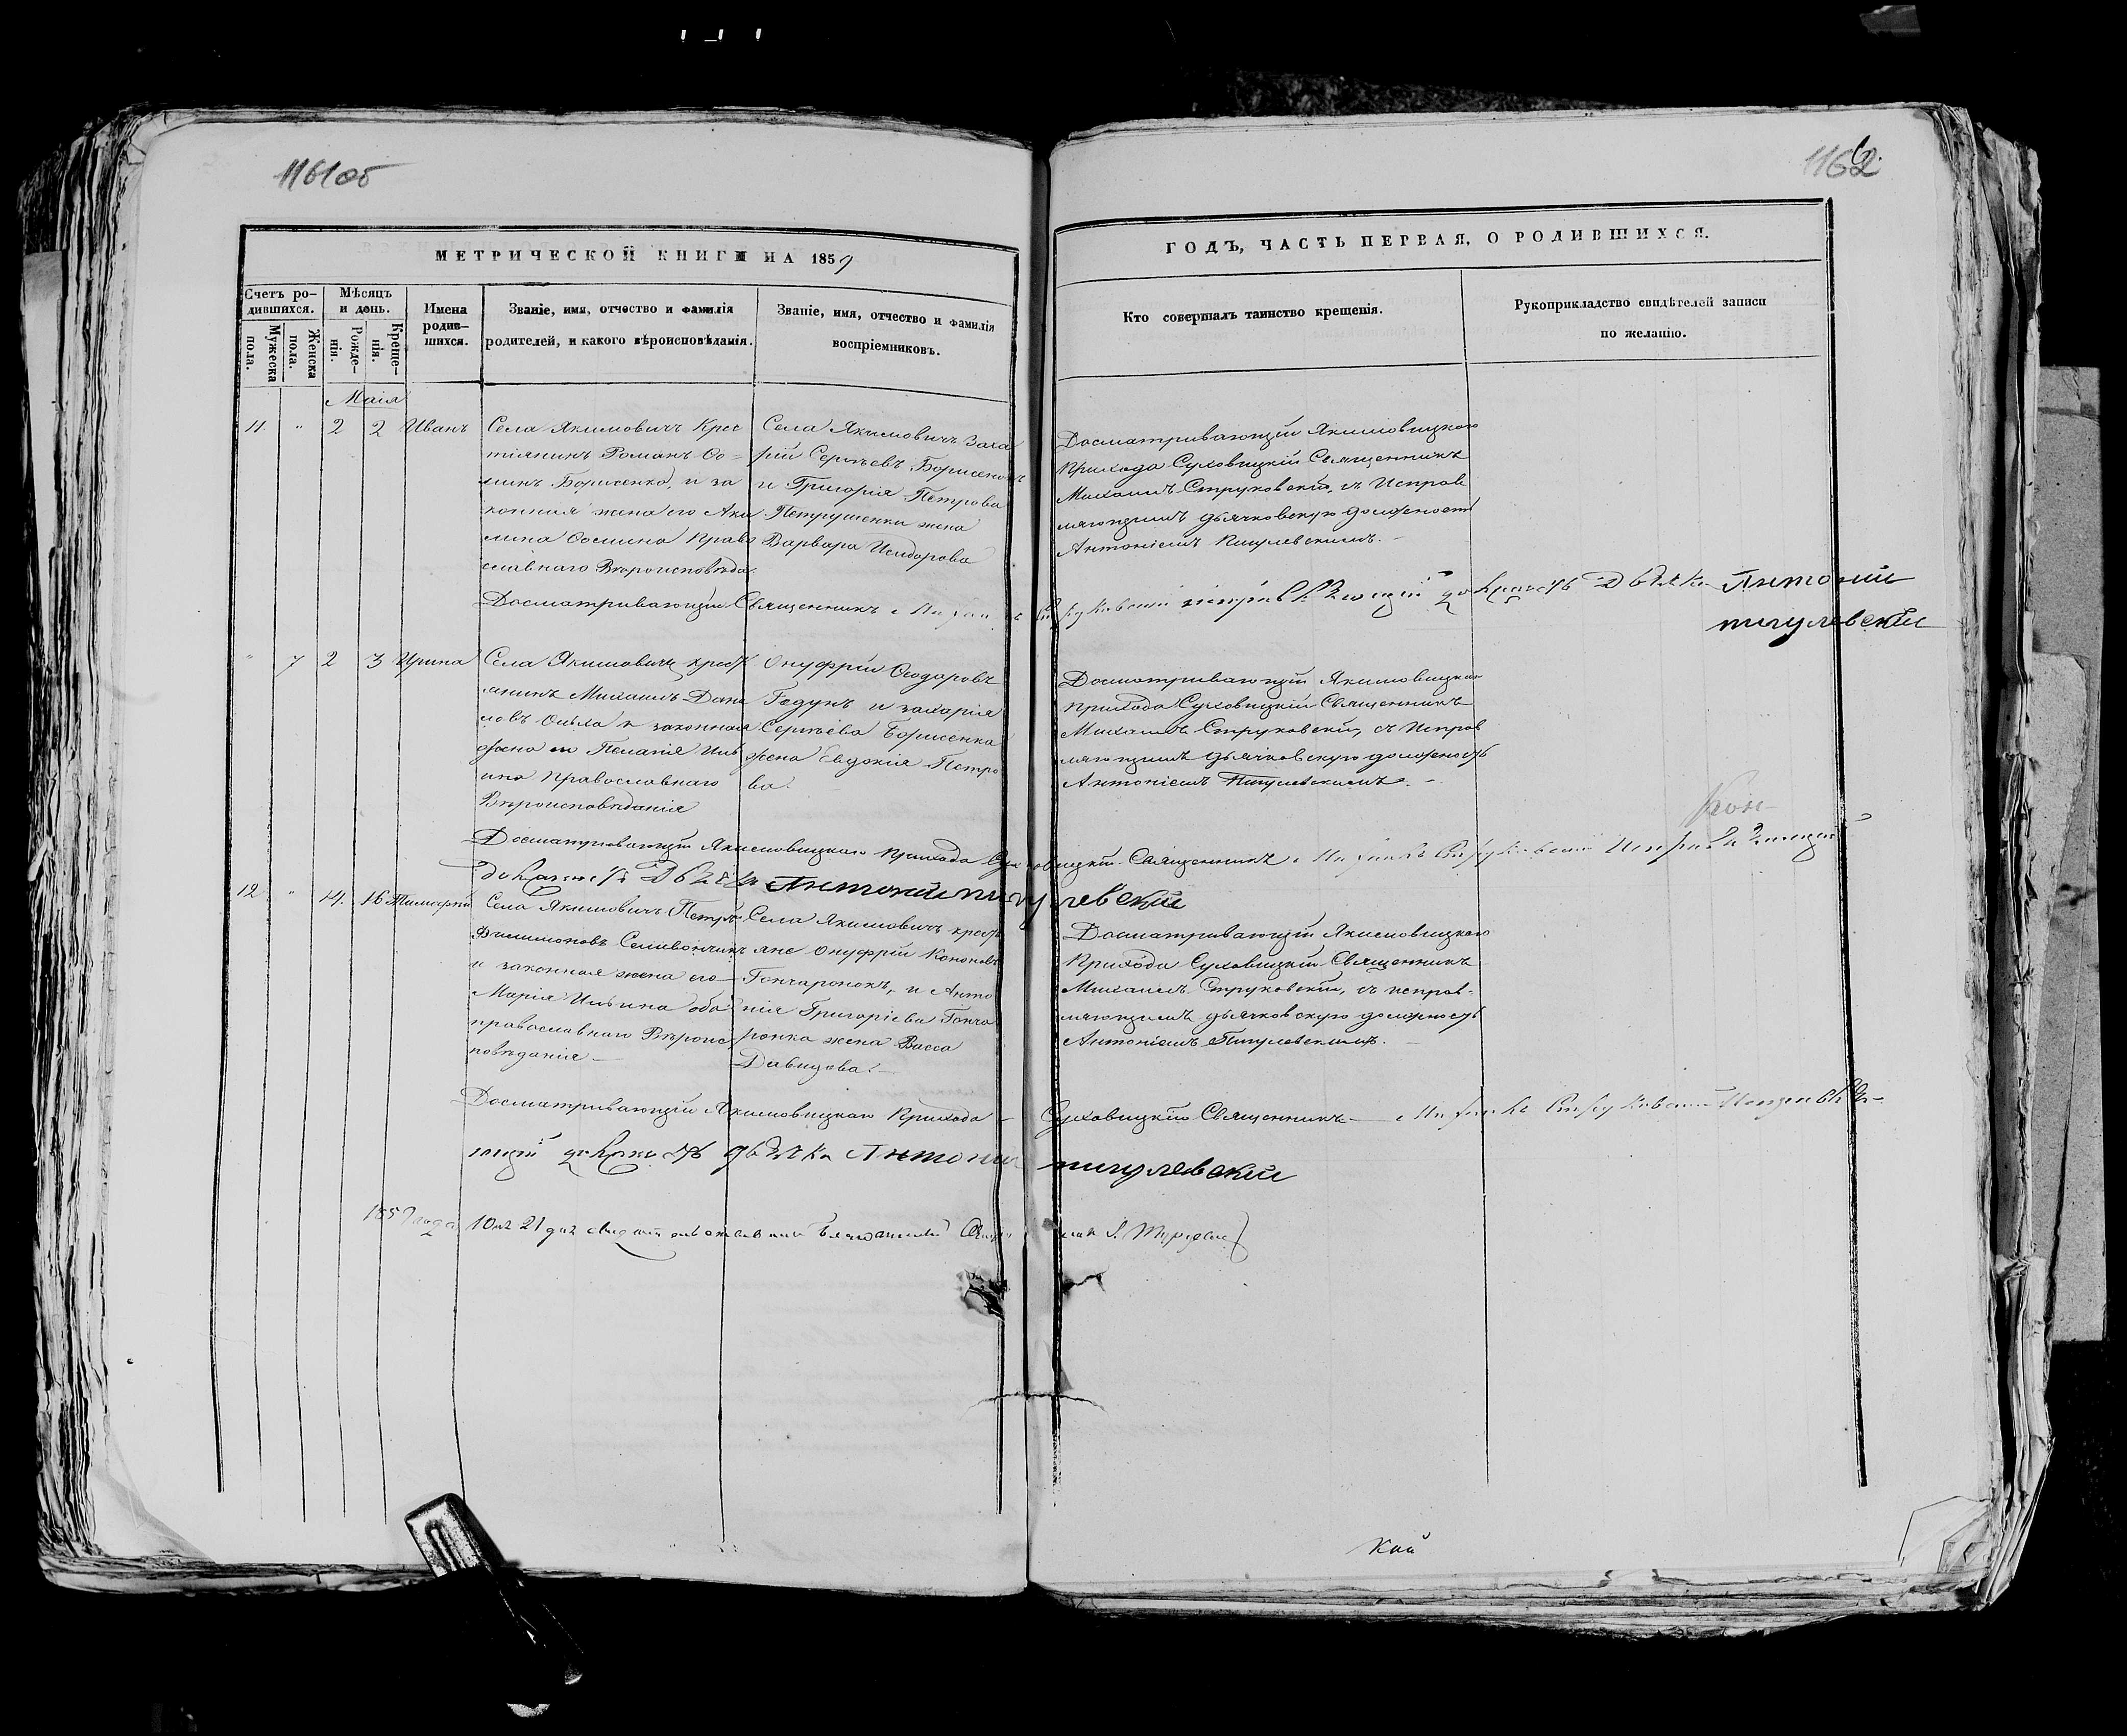 1161об
1162
МЕТРИЧЕСКОЙ КНИГИ НА 1859
ГОДЪ, ЧАСТЬ ПЕРВАЯ, О РОДИВШИХСЯ.
Счетъ ро-
дившихся.
Мужеска
пола.
Женска
пола.
Мѣсяцъ
и день.
Рожде-
нія.
Креще-
нія.
Имена
родив-
шихся.
Званіе, имя, отчество и фамилія
родителей, и какого вѣроисповѣданія.
Званіе, имя, отчество и фамилія
воспріемниковъ.
Кто совершалъ таинство крещенія.
Рукоприкладство свидѣтелей записи
по желанію.
Маія
11. " 2 2 Иванъ
Села Якимовичъ Крес
тіянинъ Романъ Ѳо-
минъ Борисенко, и за
конная жена его Аку
лина Ѳомина Право
славнаго Вѣроисповѣда.
Села Якимовичъ Заха
рій Сергѣевъ Борисенокъ
и Григорія Петрова
Петрушенки жена
Варвара Исидорова
Досматривающій Якимовицкого
Прихода Суховицкій Священникъ
Михаилъ Струковскій, съ Исправ
ляющимъ дьячковскую должность
Антоніемъ Пигулевскимъ.
Досматривающій Священникъ Михаилъ Струковскій исправляющий должность Дьячка Антоний
пигулевский
" 7 2 3 Ирина
Села Якимовичъ крест
янинъ Михаилъ Дани
ловъ и законная
жена его Пелагія Иль
ина Православнаго
Вѣроисповѣданія
Онуфрій Ѳеодоровъ
Годунъ и захарія
Сергѣева Борисенка
жена Евдокія Петро
ва.
Досматривающій Якимовицкаго
Прихода Суховицкій Священникъ
Михаилъ Струковскій, съ Исправ
ляющимъ дьячковскую должность
Антоніемъ Пигулевскимъ.
Досматривающій Якимовицкаго Прихода Суховицкій Священникъ Михаилъ Струковскій Исправляющий
должность Дьячка Антоний пигулевский
12 " 14. 16 Тимофей
Села Якимовичъ Петръ
Филимоновъ Селивончикъ
и законная жена его
Марія Ильина оба
православнаго Вѣроис
повѣданія
Села Якимовичъ крест
яне Онуфрій Кононовъ
Гончаронокъ, и Анто
нія Григорьева Гонча
ронка жена Васса
Давидова.
Досматривающій Якимовицкаго
Прихода Суховицкій Священникъ
Михаилъ Струковскій, съ исправ-
ляющимъ дьячковскую должность
Антоніемъ Пигулевскимъ.
Досматривающій Якимовицкаго Прихода Суховицкій Священникъ Михаилъ Струковский Исправля-
ющий должность дьячка Антоний пигулевский
1859 года 21 дня